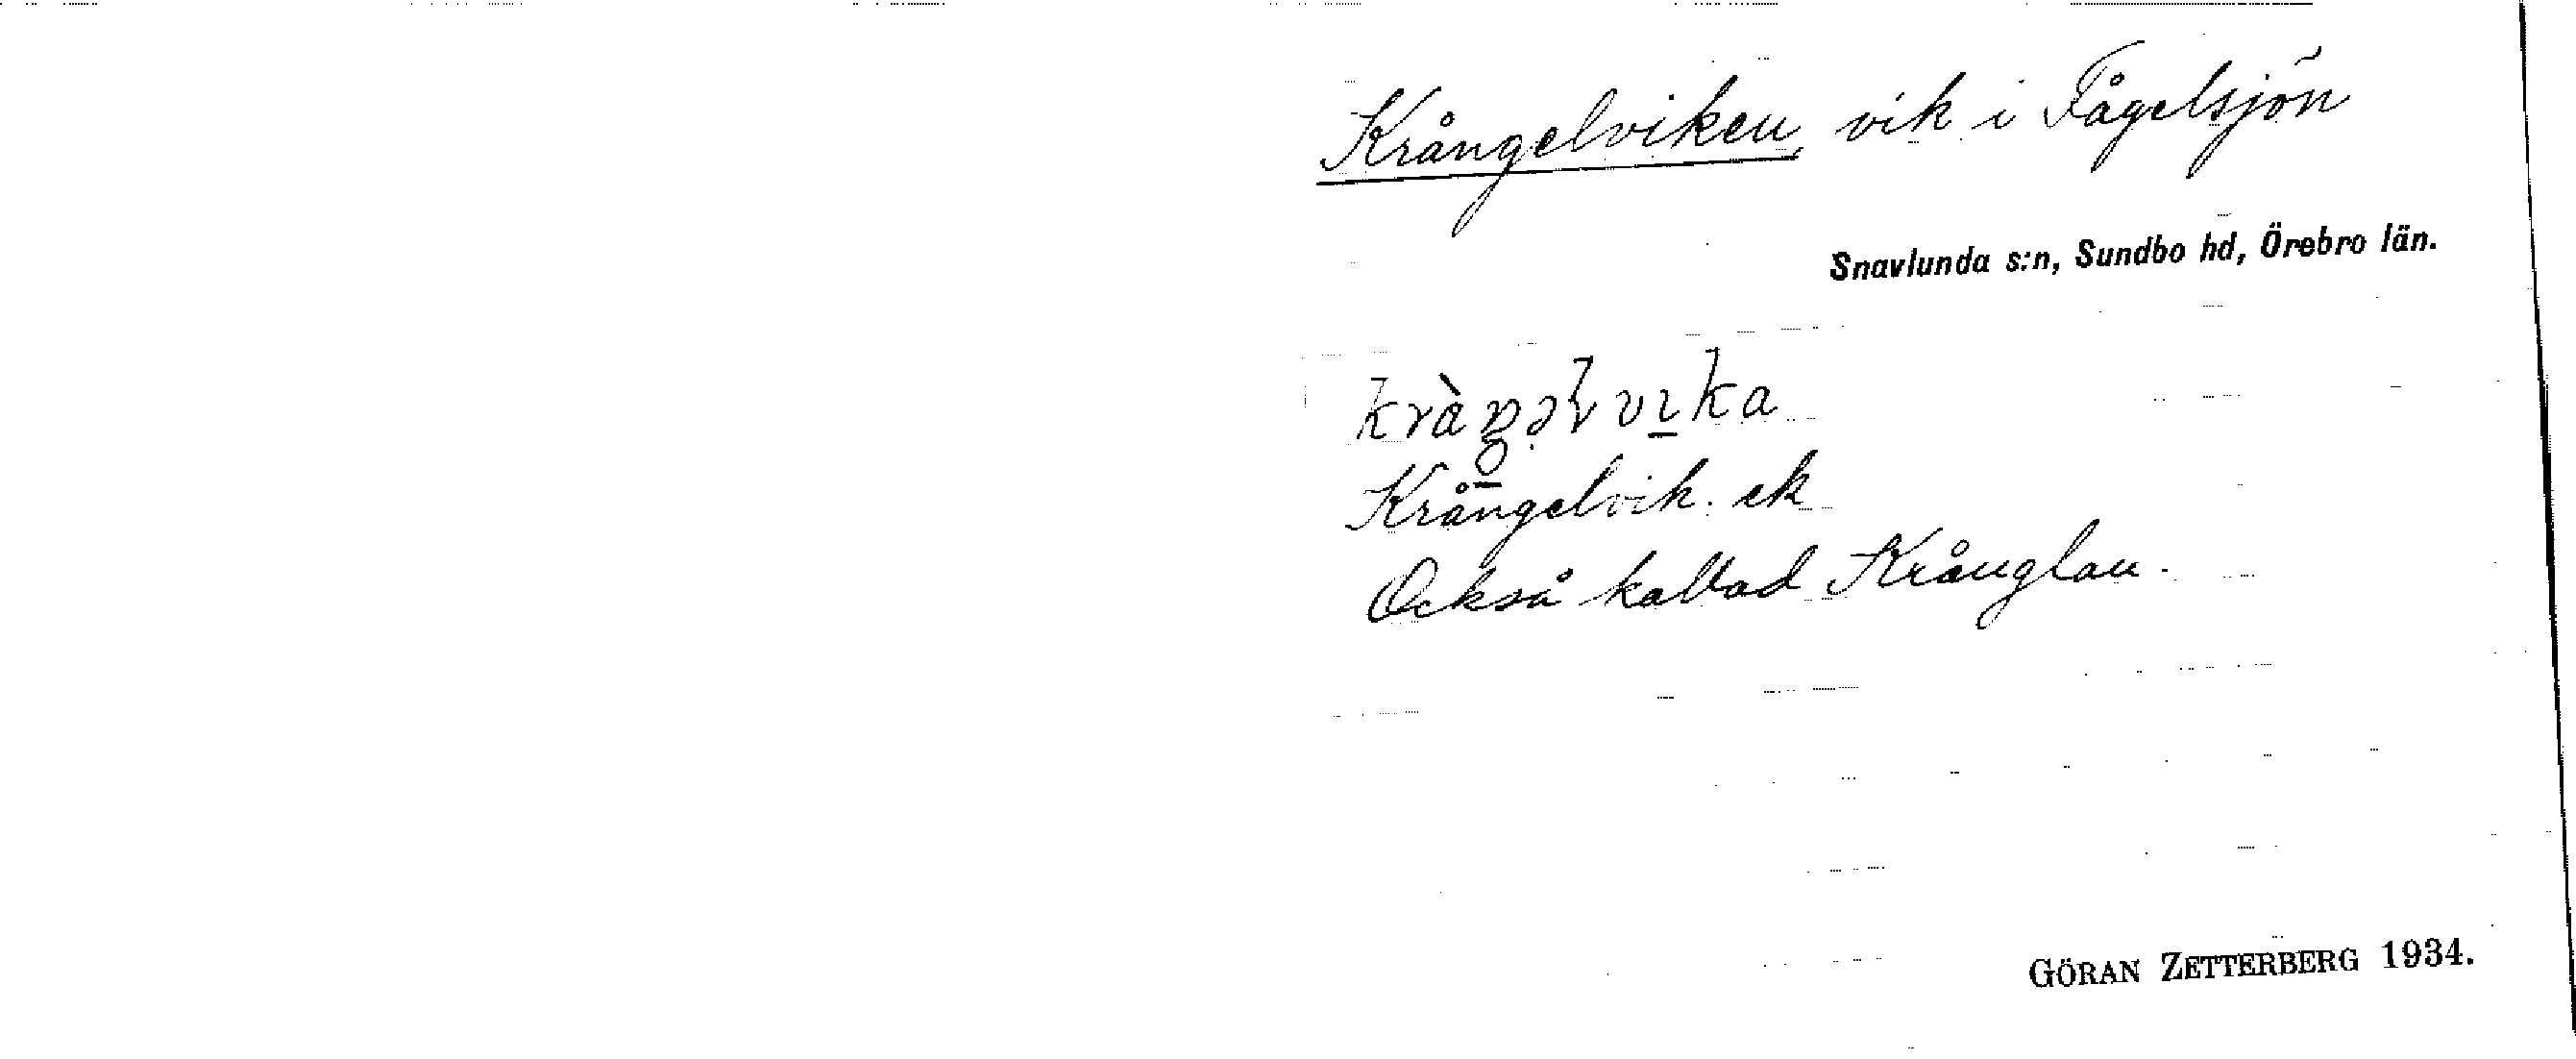 Krångelviken, vik i Fågelsjön
Snavlunda s:n, Sundbo hd, Örebro län.
Krångelvik. ek
Också kallad Krånglan.
GÖRAN ZETTERBERG 1934.